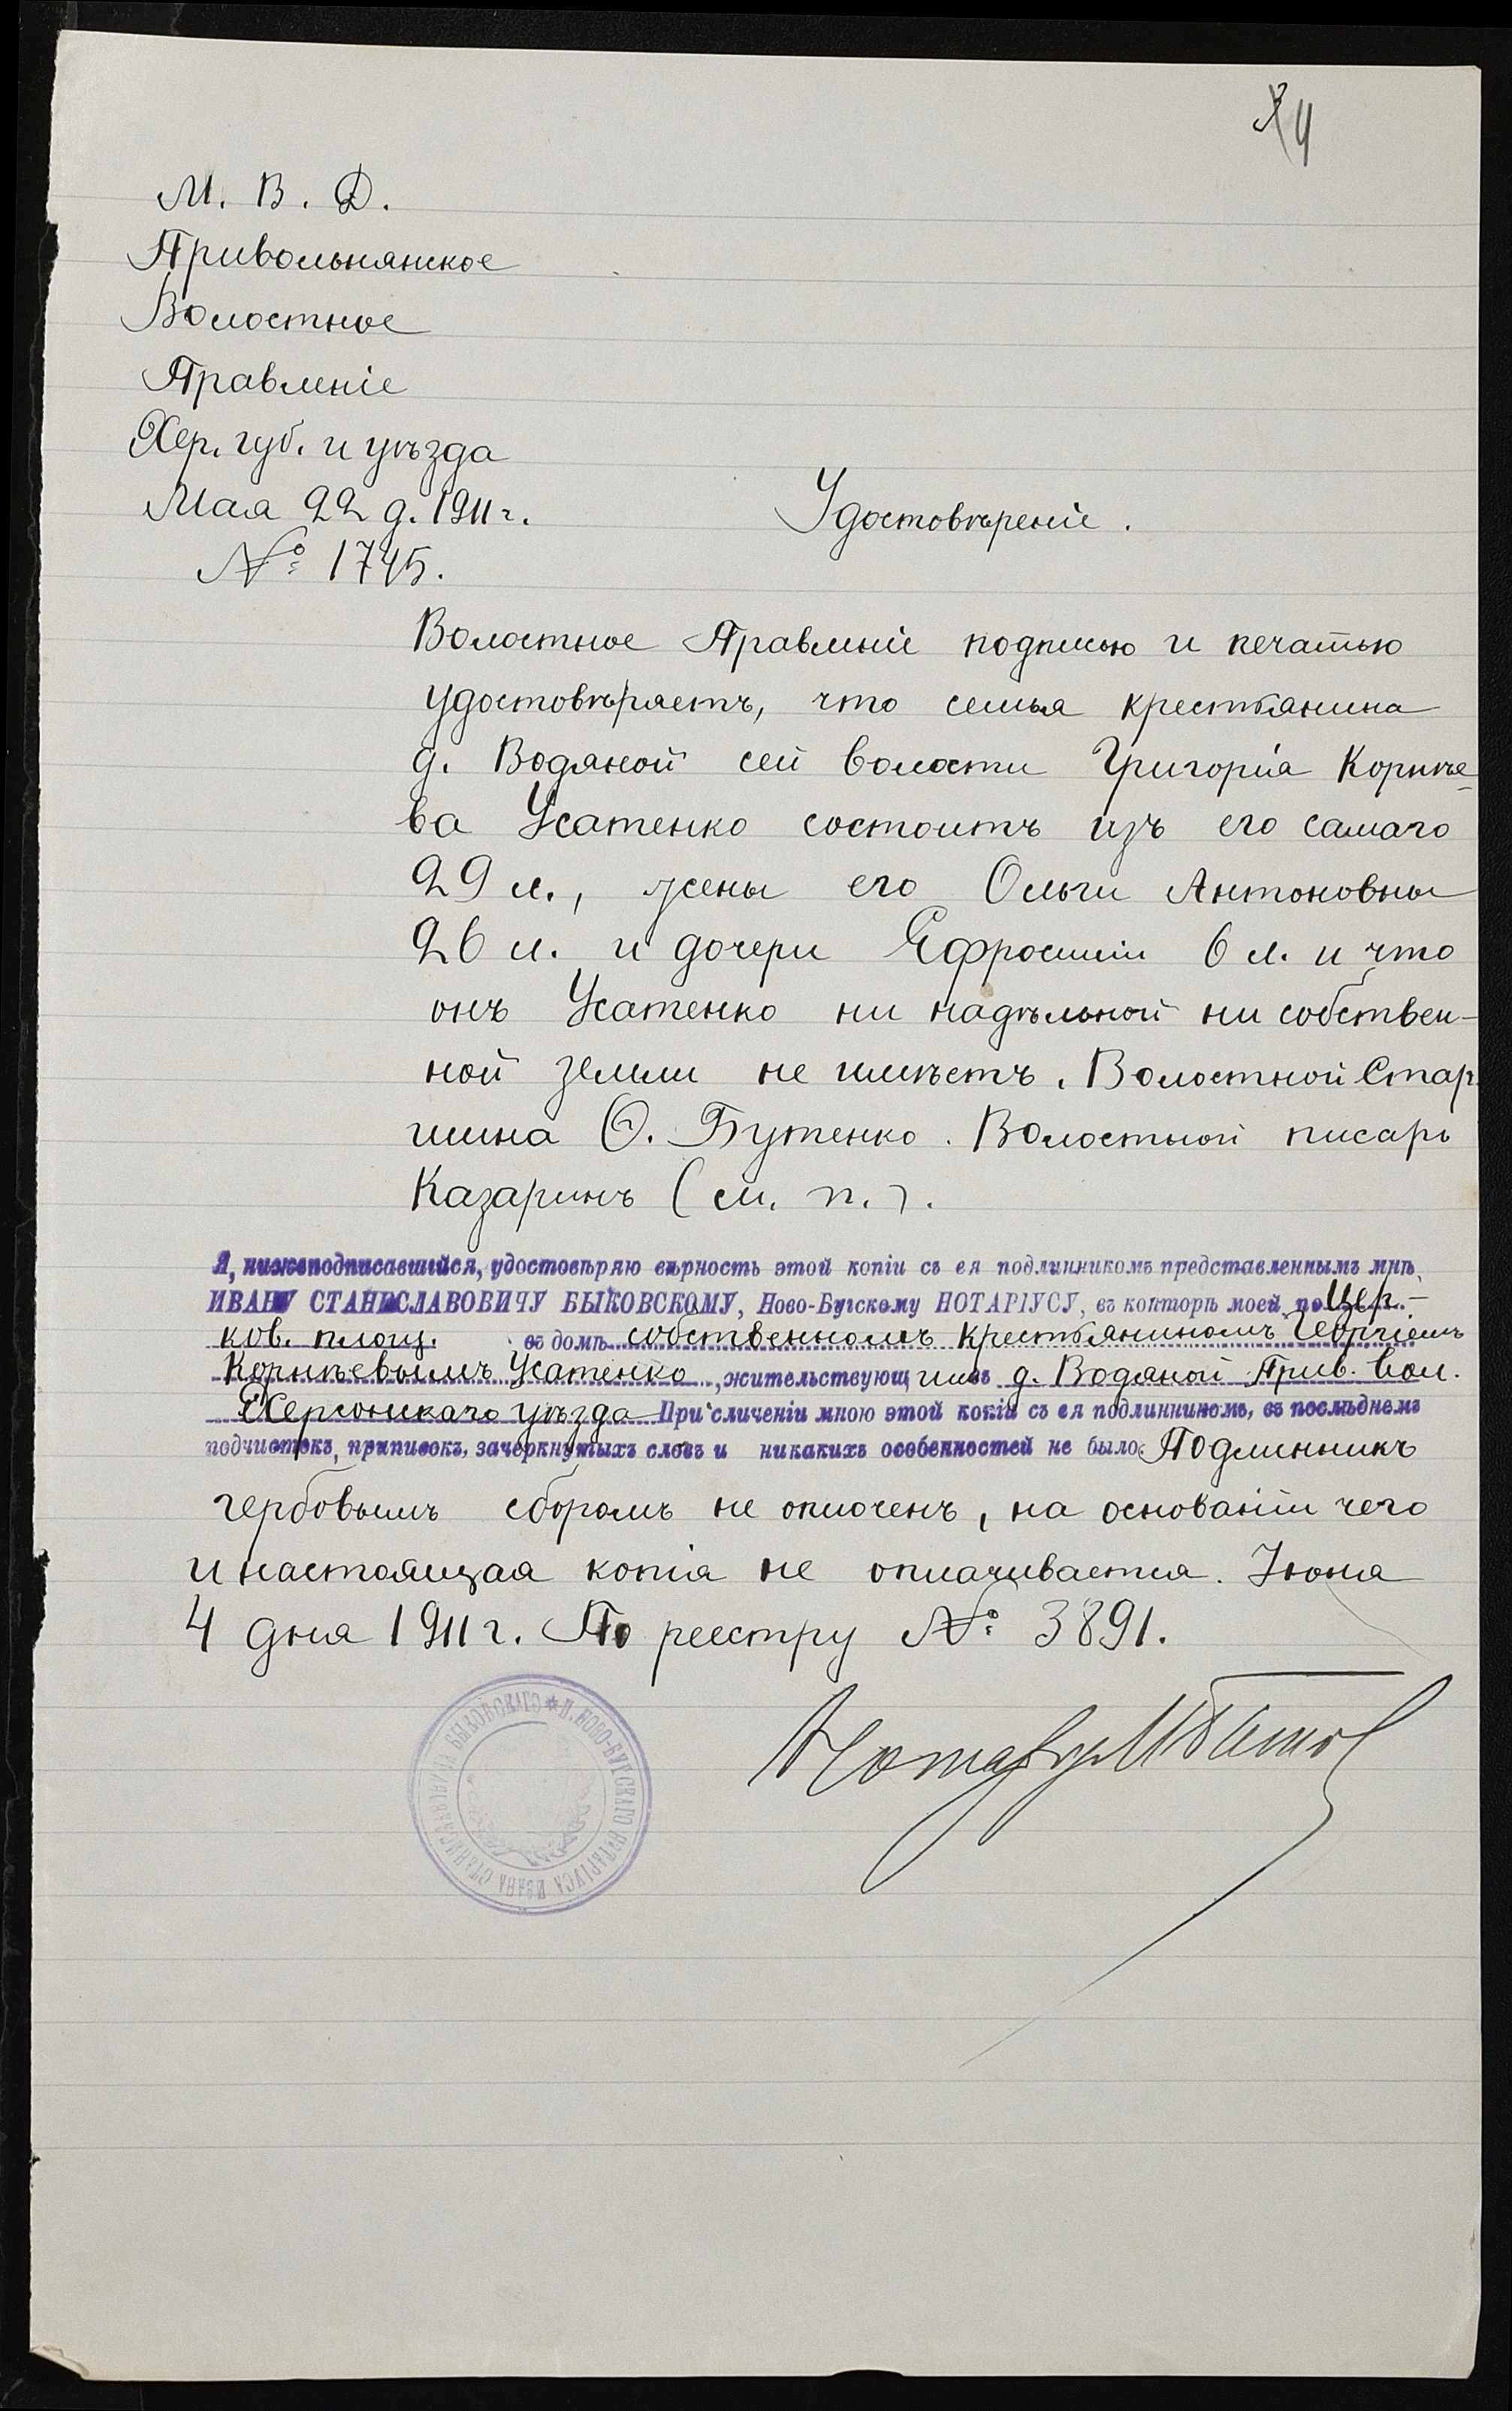 4
М. В. Д.
Привольнянское
Волостное
Правленіе
Хер. губ. и уѣзда
Мая 22 д. 1911 г.
№ 1745.
Удостовѣреніе.
Волостное Правленіе подписью и печатью
удостовѣряетъ, что семья крестьянина
д. Водяной сей волости Григорія Корнѣе-
ва Усатенко состоитъ изъ его самаго
29 л., жены его Ольги Антоновны
26 л. и дочери Ефросиніи 6 л. и что
онъ Усатенко ни надѣльной ни собствен-
ной земли не имѣетъ. Волостной Стар
шина Ѳ. Бутенко. Волостной писарь
Казаринъ (м. п.).
Я, нижеподписавшійся, удостовѣряю вѣрность этой копіи съ ея подлинникомъ представленнымъ мнѣ,
ИВАНУ СТАНИСЛАВОВИЧУ БЫКОВСКОМУ, Ново-Бугскому НОТАРІУСУ, въ конторѣ моей по Цер.-
ков. площ. въ домѣ собственномъ крестьяниномъ Георгіемъ
Корнѣевымъ Усатенко, жительствующимъ д. Водяной Прив. вол.
Херсонскаго уѣзда При сличеніи мною этой копіи съ ея подлинникомъ, въ послѣднемъ
подчистокъ, приписокъ, зачеркнутыхъ словъ и никакихъ особенностей не было. Подлинникъ
гербовымъ сборомъ не оплоченъ, на основаніи чего
и настоящая копія не оплачивается. Іюня
4 дня 1911 г. По реестру № 3891.
Нотаріусъ
* Н. НОВО-БУГСКАГО НОТАРІУСА ИВАНА СТАНИСЛАВОВИЧА БЫКОВСКАГО